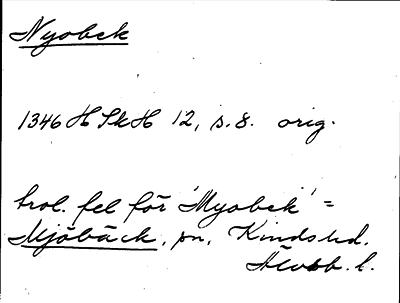 Nyobek
1346 H SkH 12, s. 8. orig.
trol. fel för 'Myobek' =
Mjöbäck, sn, Kinds hd.